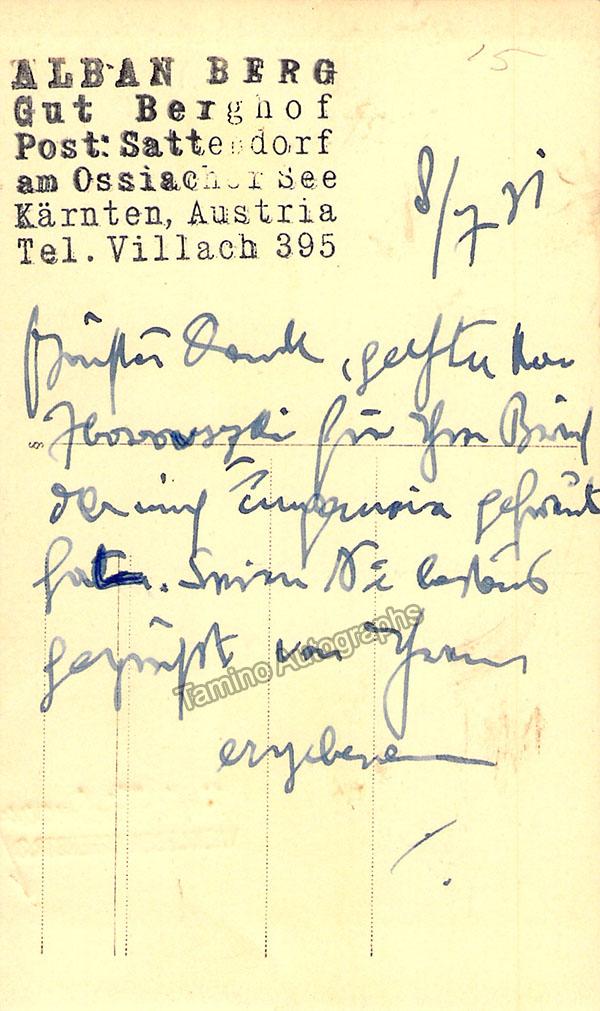 15
ALBAN BERG
Gut Berghof
Post: Sattendorf
am Ossiacher See
Kärnten, Austria
Tel. Villach 395
8/7 31
Dank, geehrter Herr
für Ihren Brief
der mich gefreut
hat. Seien Sie bestens
gegrüßt von Ihrem
ergebenen
Tamino Autographs